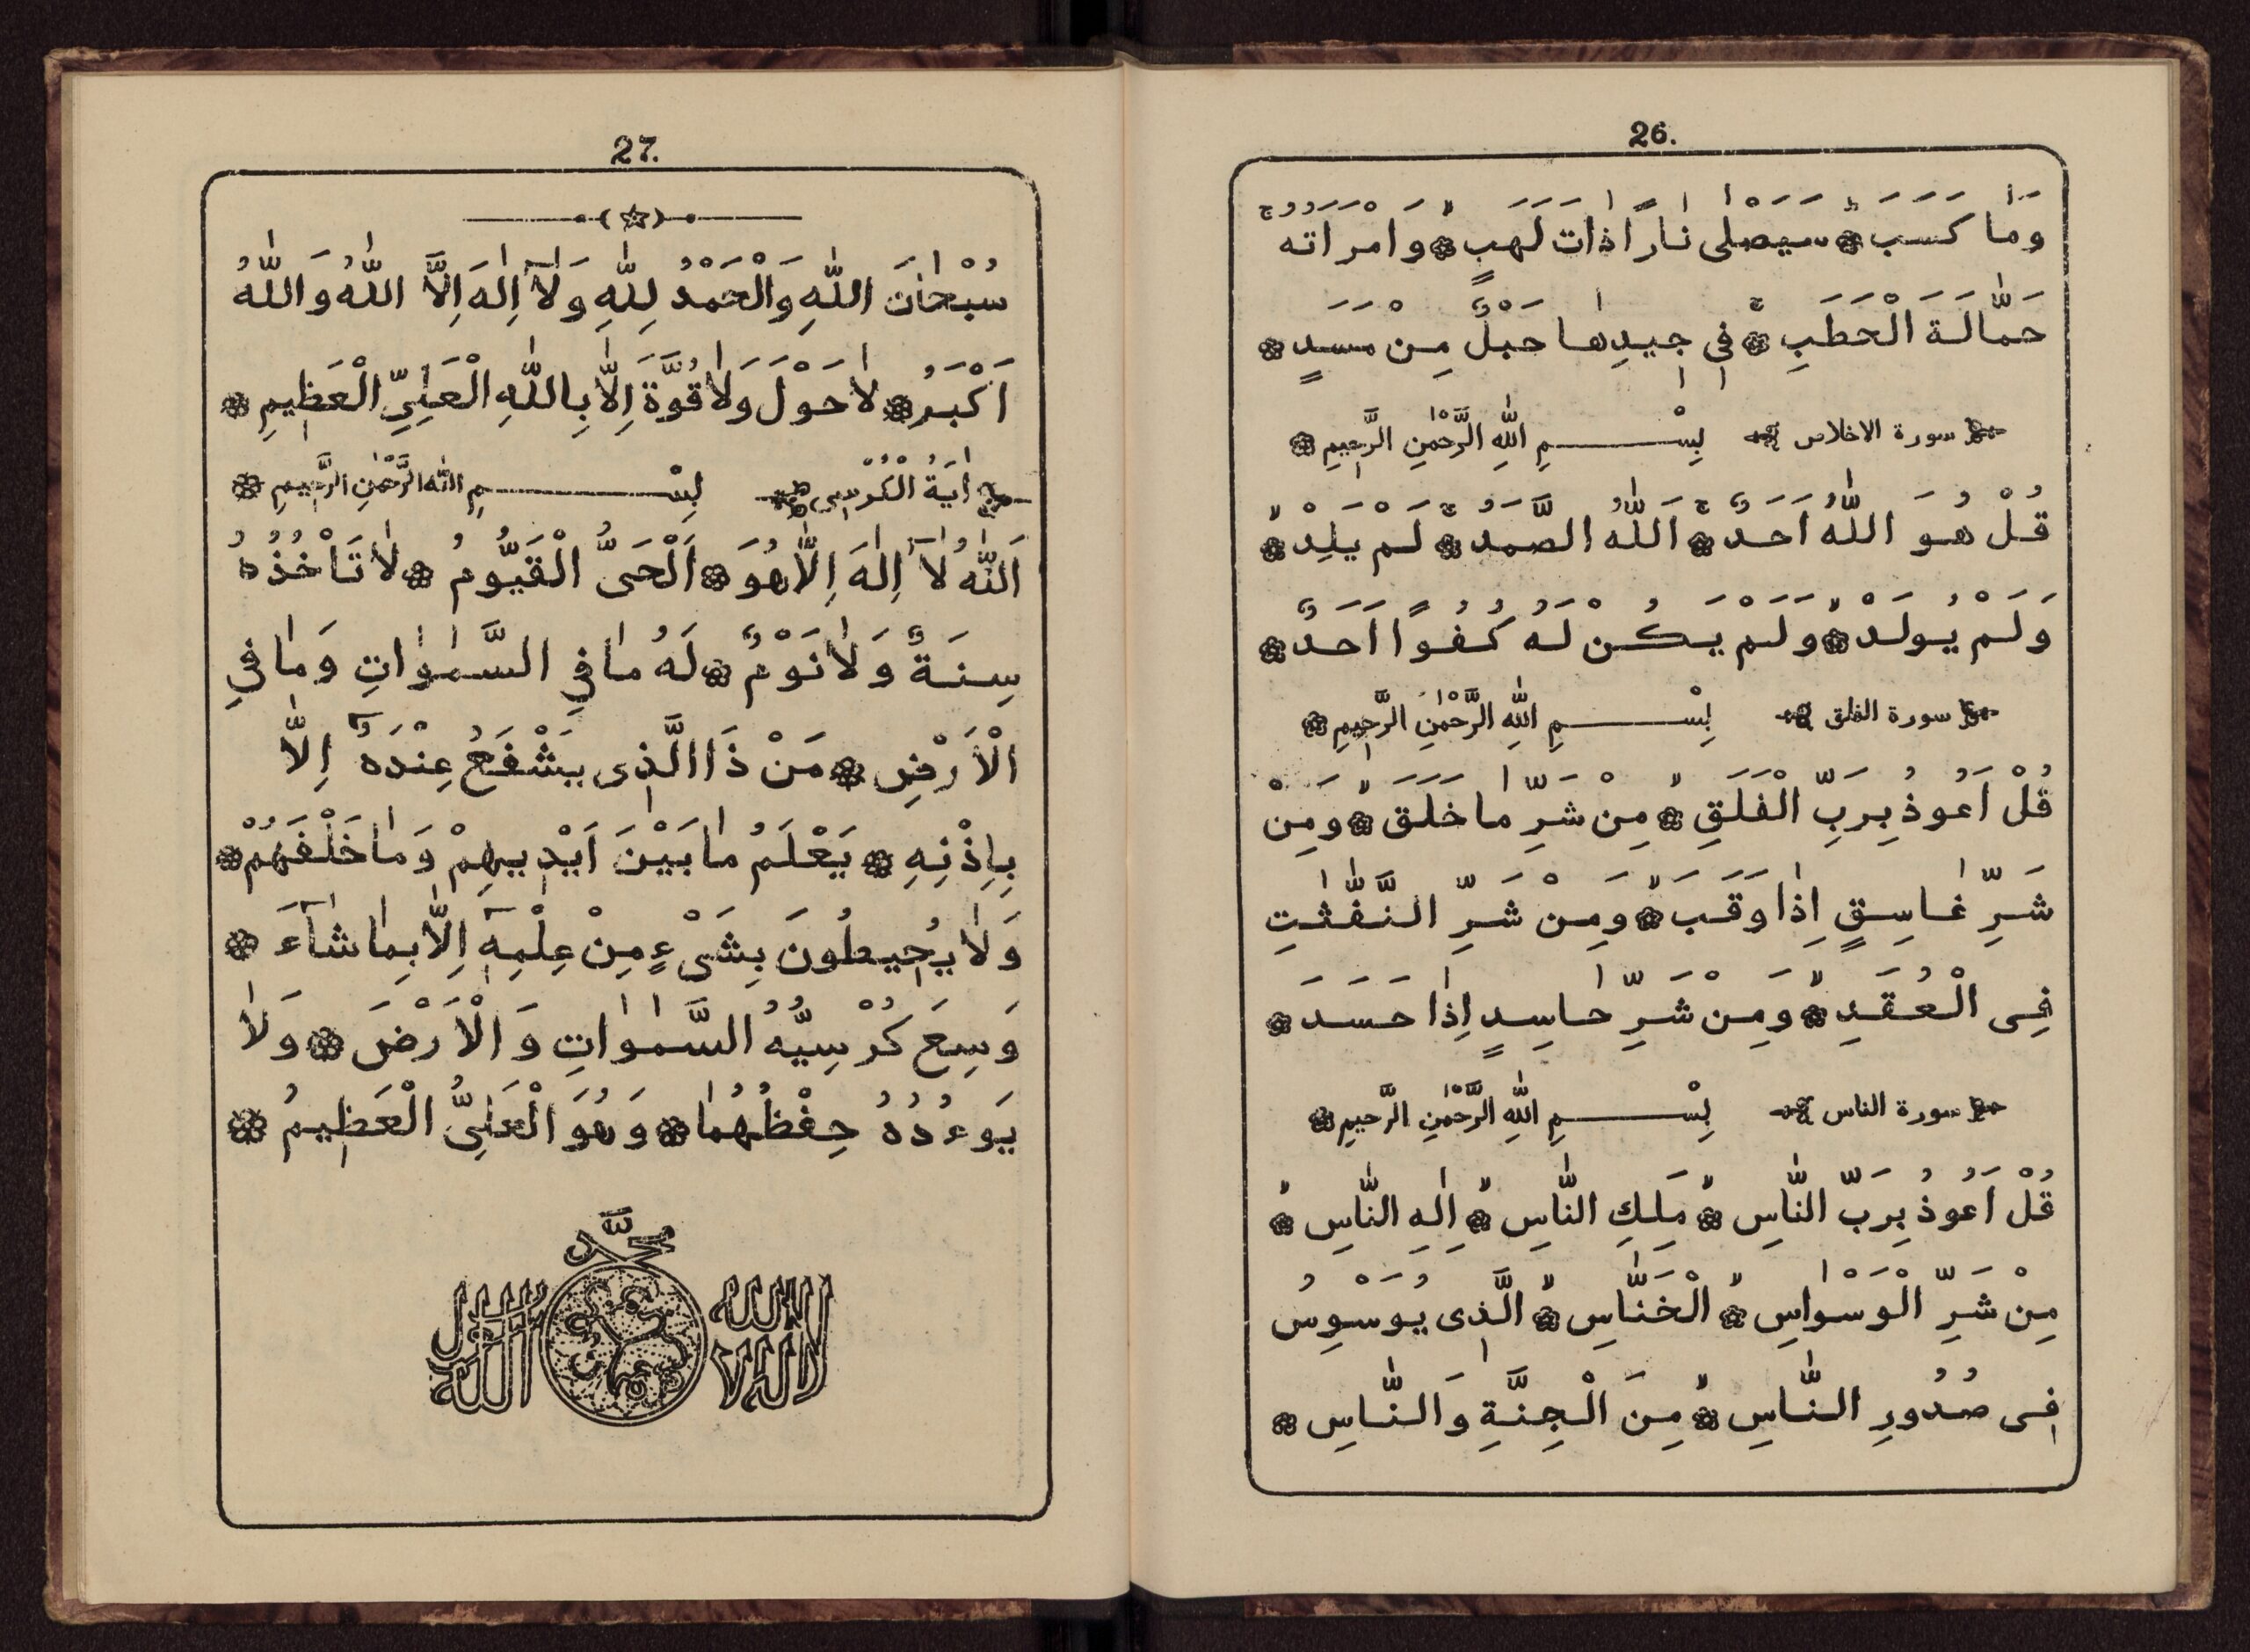 26.
وَمَٰا كَسَبَ سَيَصْلٰى نَٰارًا ذَٰاتَ لَهَبٍ وَامْرَاَتُهُ
حَمَّٰالَةَ الْحَطَبِ فِي جِيدِهَٰا حَبْلٌ مِنْ مَسَدٍ
سورة الاخلاص بِسْمِ اللّٰهِ الرَّحْمٰنِ الرَّحِيمِ
قُلْ هُوَ اللّٰهُ اَحَدٌ اَللّٰهُ الصَّمَدُ لَمْ يَلِدْ
وَلَمْ يُولَدْ وَلَمْ يَكُنْ لَهُ كُفُوًا اَحَدٌ
سورة الفلق بِسْمِ اللّٰهِ الرَّحْمٰنِ الرَّحِيمِ
قُلْ اَعُوذُ بِرَبِّ الْفَلَقِ مِنْ شَرِّ مَٰا خَلَقَ وَمِنْ
شَرِّ غَٰاسِقٍ اِذَٰا وَقَبَ وَمِنْ شَرِّ النَّفّٰثٰتِ
فِى الْعُقَدِ وَمِنْ شَرِّ حَٰاسِدٍ اِذَٰا حَسَدَ
سورة الناس بِسْمِ اللّٰهِ الرَّحْمٰنِ الرَّحيمِ
قُلْ اَعُوذُ بِرَبِّ النّٰاسِ مَلِكِ النّٰاسِ اِلٰهِ النّٰاسِ
مِنْ شَرِّ الْوَسْوٰاسِ الْخَنّٰاسِ الَّذِى يُوَسْوِسُ
فِى صُدُورِ النّٰاسِ مِنَ الْجِنَّةِ وَالنّٰاسِ
27.
سُبْحٰانَ اللّٰهِ وَالْحَمْدُ لِلّٰهِ وَلَٰٓا اِلٰهَ اِلَّا اللّٰهُ وَاللّٰهُ
اَكْبَرُ لٰا حَوْلَ وَلٰا قُوَّةَ اِلّٰا بِاللّٰهِ الْعَلِيِّ الْعَظِيمِ
اٰيَةُ الْكُرْسِى بِسْمِ اللّٰه الرَّحْمٰنِ الرَّحِيمِ
اَللّٰهُ لَٰٓا اِلٰهَ اِلّٰا هُوَ اَلْحَىُّ الْقَيُّومُ لٰا تَاْخُذُهُ
سِنَةٌ وَلٰا نَوْمٌ لَهُ مٰا فِي السَّمٰوٰاتِ وَمٰا فِي
الْاَرْضِ مَنْ ذَا الَّذِى يَشْفَعُ عِنْدَهُٓ اِلّٰا
بِاِذْنِهِ يَعْلَمُ مٰا بَيْنَ اَيْدِيهِمْ وَمٰا خَلْفَهُمْ
وَلٰا يُحِيطُونَ بِشَىْءٍ مِنْ عِلْمِهِٓ اِلّٰا بِمٰا شٰٓاءَ
وَسِعَ كُرْسِيُّهُ السَّمٰوٰاتِ وَالْاَرْضَ وَلٰا
يَوءُدُهُ حِفْظُهُمٰا وَهُوَ الْعَلِىُّ الْعَظِيمُ
محمّد
لا اله الا الله
رسول الله